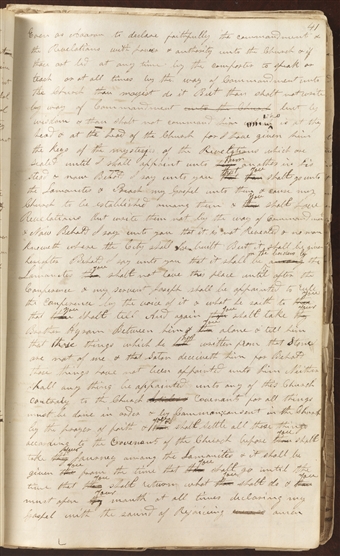 41
even as Aaron to declare faithfully the commandments &
the Revelations with power & authority unto the Church & if
thou art led at any time by the comforter to speak or
teach or at all times by the way of Commandment unto
the Church thou mayest do it But thou shalt not write
by way of Commandment unto the Church but by
wisdom & thou shalt not command him who is at thy
head & at the head of the Church for I have given him
the keys of the mysteries of the Revelations which are
sealed until I shall appoint unto them another in his
stead & now Behold I say unto you that you shall go unto
the Lamanites & Preach my Gospel unto them & cause my
Church to be established among them & you shall have
Revelations but write them not by the way of Commandment
& Now Behold I say unto you that it is not Revealed & no man
knoweth where the City shall be built But it shall be given
hereafter Behold I say unto you that it shall be on the borders by the
Lamanites you shalt not leave this place until after the
Conference & my servent Joseph shall be appointed to rule
the Conference by the voice of it & what he saith to you
that you shall tell And again you shall take your
Brother Hyram Between him & you alone & tell him
that those things which he hath written from that Stone
are not of me & that Satan deceiveth him for Behold
those things have not been appointed unto him Neither
shall any thing be appointed unto any of this Church
contrary to the Church Covenant for all things
must be done in order & by Common consent in the Church
by the prayer of faith & you shall settle all these things
according to the Covenant of the Church before you shall
take your Journey among the Lamanites & it shall be
given you from the time that you shall go until the
time that you shall return what you shall do & you
must open your mouth at all times declaring my
Gospel with the sound of Rejoicing amen